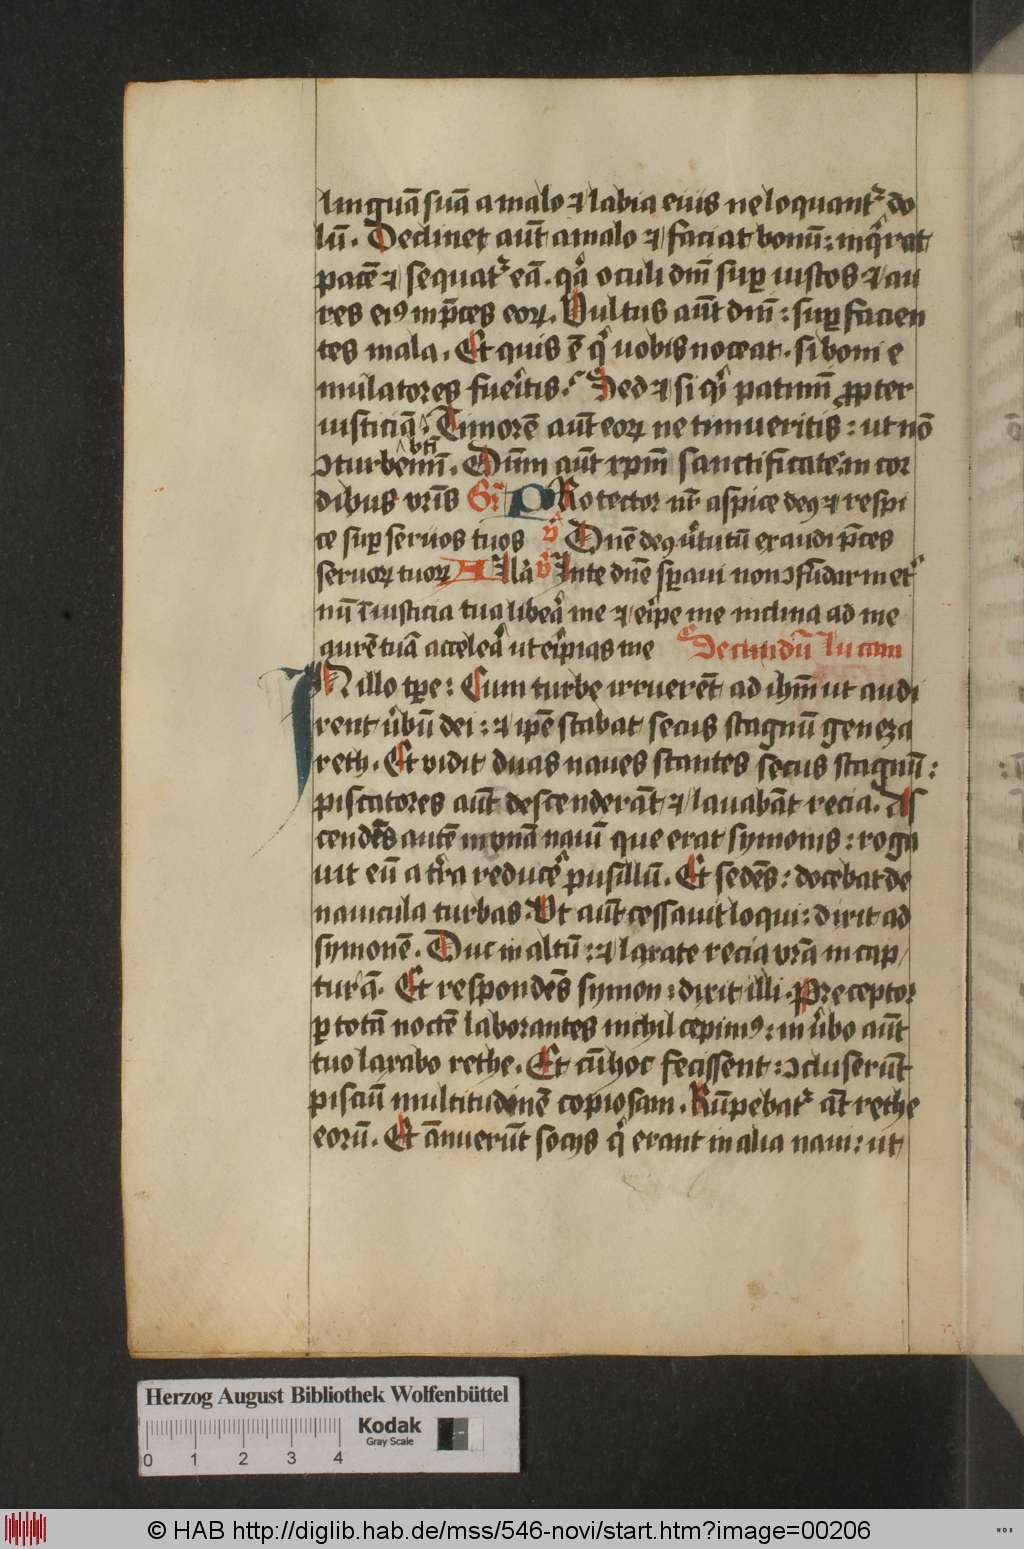 linguā suā a malo ⁊ labia eius ne loquantᷣ do
lū. Declinet aūt a malo ⁊ faciat bonū: inqͥrat
pacē ⁊ sequatᷣ eā. qᷓ oculi dnī suꝑ iustos ⁊ au
res eiꝰ in p̄ces eoꝝ. Vultus aūt dnī: suꝑ facien
tes mala. Et quis ē qͥ uobis noceat. si boni e
mulatores fueͥtis. Sed ⁊ si qͥ patimī ꝓpter
iusticiā. Timorē aūt eoꝝ ne timueritis: ut nō
ↄturbemī. Dn̄m aūt xpm̄ sanctificate in cor
dibus vr̄is Gr̄ PRotector nr̄ aspice deꝰ ⁊ respi
ce suꝑ seruos tuos v̄ Dn̄e deꝰ uͥtutū exaudi p̄ces
seruoꝝ tuoꝝ Alla v̄ In te dn̄e sꝑaui non ↄfūdar in etᷣ
nū ī iusticia tua libeᷓ me ⁊ eiͥpe me inclina ad me
aurē tuā acceleᷓ ut eiͥpias me Secundū Lucam
IN illo tꝑe: Cum turbe irruerēt ad ihm̄ ut audi
rent ūbū dei: ⁊ ipē stabat secus stagnū geneza
reth. Et vidit duas naues stantes secus stagnū:
piscatores aūt descenderāt ⁊ lauabāt recia. As
cendēs autē in vnā nauī que erat symonis: roga
uit eū a tr̄a reducēᷣ pusillū. Et sedēs: docebat de
nauicula turbas. Ut aūt cessauit loqui: dixit ad
symonē. Duc in altū: ⁊ laxate recia vr̄a in cap
turā. Et respondēs symon: dixit illi. Preceptor
ꝑ totā noctē laborantes nichil cepimꝰ: in ūbo aūt
tuo laxabo rethe. Et cū hoc fecissent: ↄcluserūt
pisciū multitudinē copiosam. Rūpebatᷣ aūt rethe
eorū. Et ānuerūt socijs qͥ erant in alia naui: ut
Herzog August Bibliothek Wolfenbüttel
0 1 2 3 4
Kodak
Gray Scale
© HAB http://diglib.hab.de/mss/546-novi/start.htm?image=00206